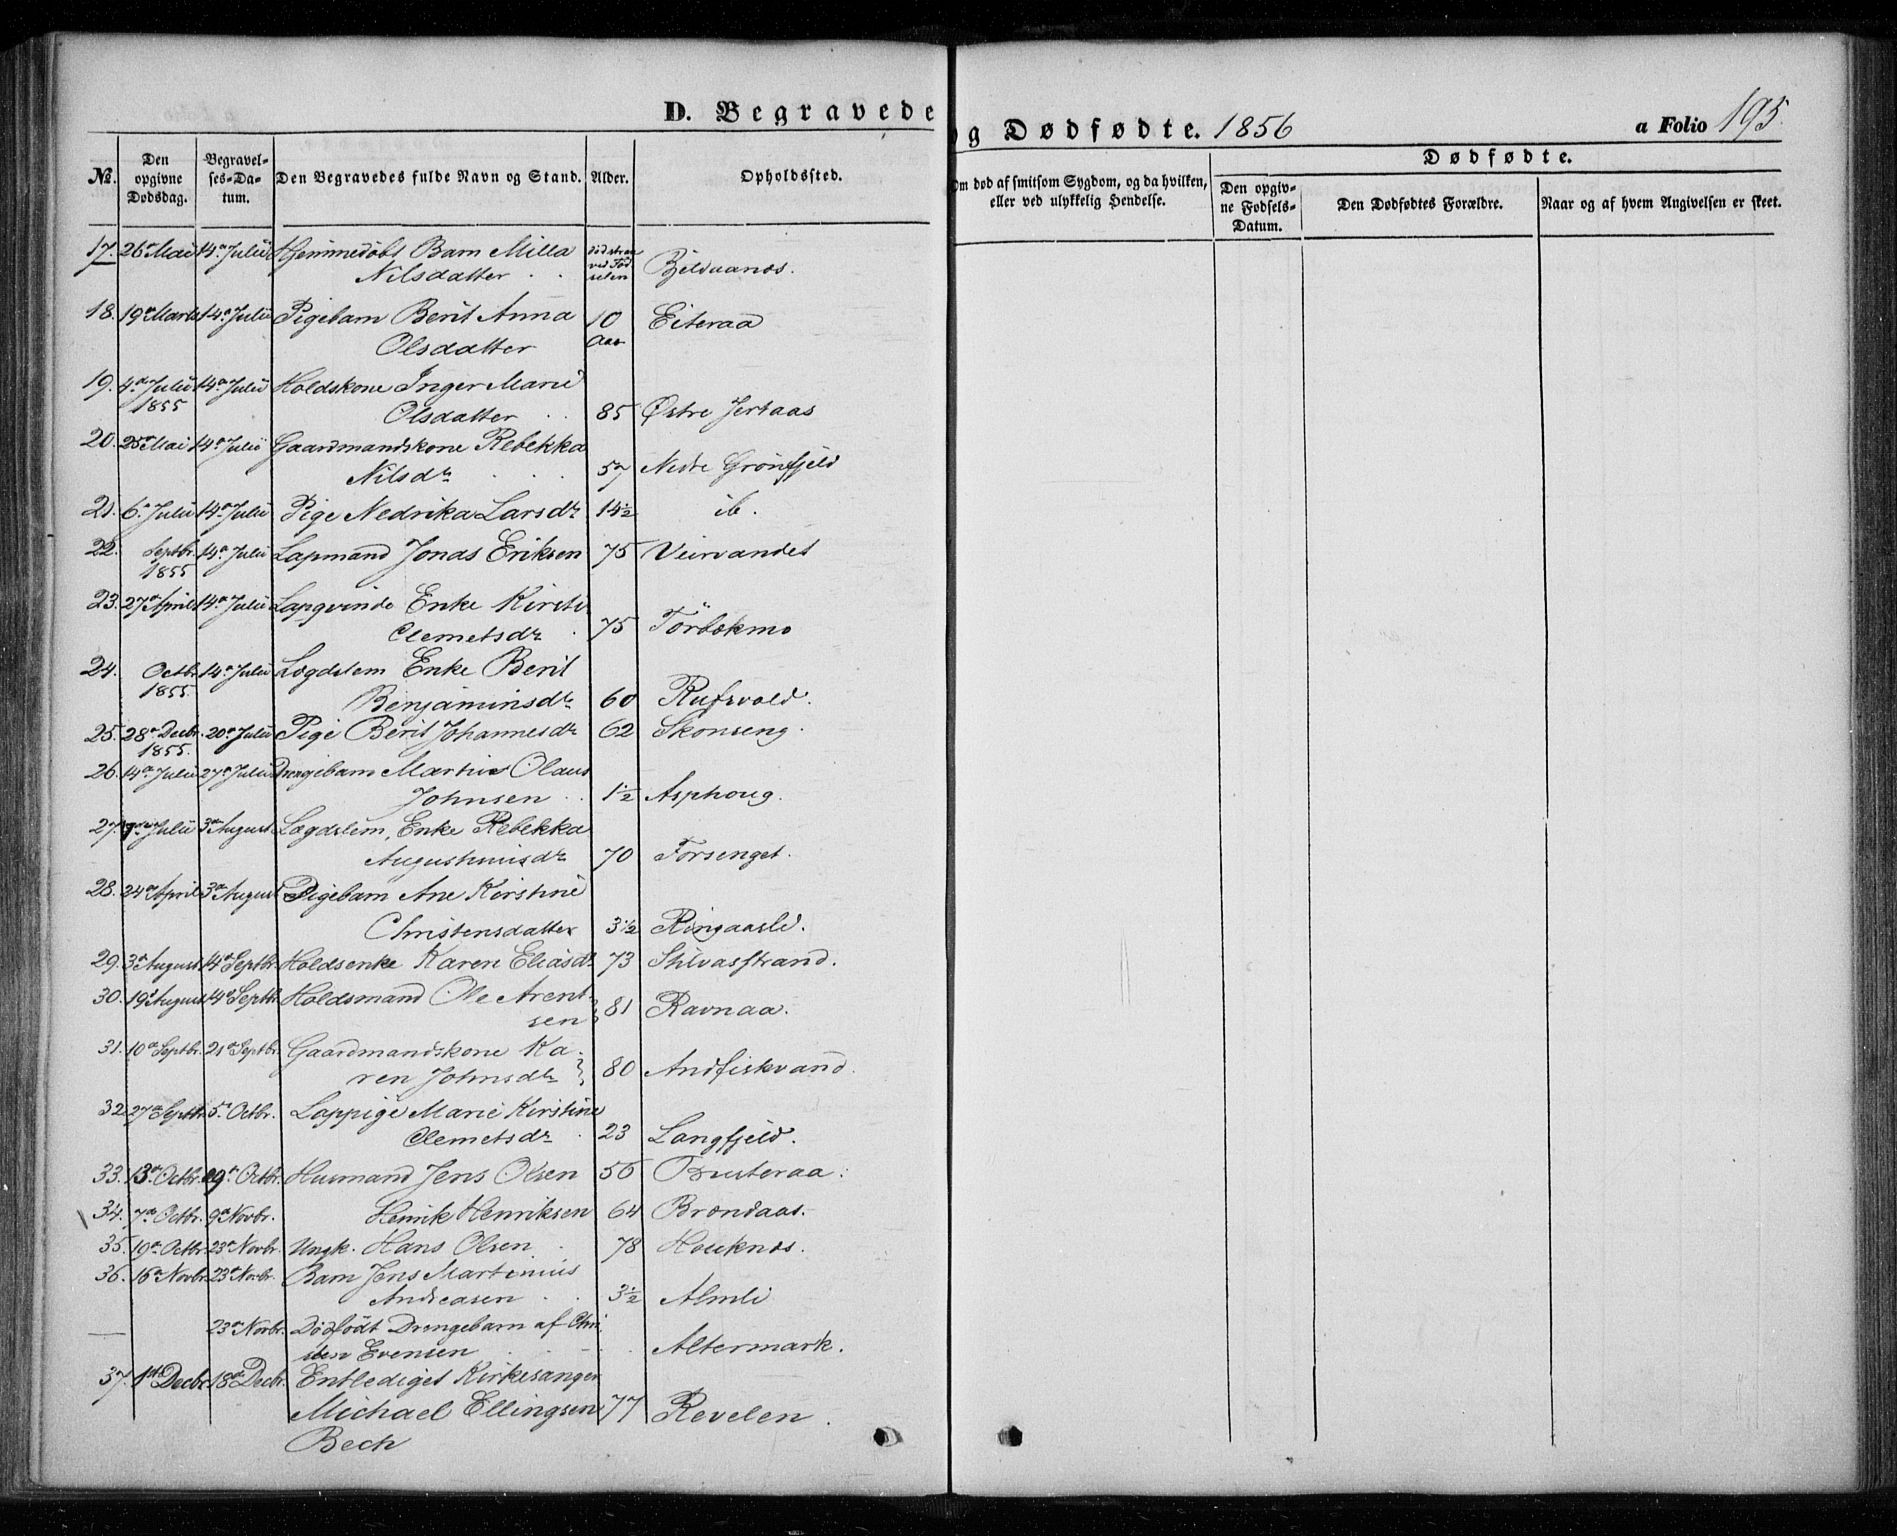 D. Begravede og Dødfødte. 1856 a Folio 195.
No. Den opgivne Dødsdag. Begravelses-Datum. Den Begravedes fulde Navn og Stand. Alder. Opholdssted. Om død af smitsom Sygdom, og da hvilken, eller ved ulykkelig Hendelse. Dødfødte.
Den opgivne Fødsels-Datum. Den Dødfødtes Forældre. Naar og af hvem Angivelsen er skeet.
17. 26de Mai 14de Julii Hjemmedøbt Barn Milla
Nilsdatter ved Fødselen
18. 19de Marts 14de Julii Pigebarn Berit Anna 10 Eiteraa
Olsdatter Aar
19. 4de Julii 14de Julii Holdskone Inger Marie
1855 Olsdatter 85 Østre Jertaas
20. 25de Mai 14de Julii Gaardmandskone Rebekka
Nilsdr 57 Nedre Grönfjeld
21. 6te Julii 14de Julii Pige Nedrika Larsdr 14½ ib.
22. Septbr. 14de Julii Lapmand Jonas Eriksen 75 Veirvandet
1855
23. 27de April 14de Julii Lapqvinde Enke Kirsti
Clemetsdr 75 Törbekmo
24. Octbr. 14de Julii Lægdslem Enke Berit
1855. Benjaminsdr 60 Rufsvold.
25. 28de Decbr. 20de Julii Pige Berit Johannesdr 62 Skonseng.
1855.
26. 14de Julii 27de Julii Drengebarn Martin Olaus
Johnsen 1½ Asphoug.
27. Julii 3de August Lægdslem, Enke Rebekka
Augustinusdr 70 Forsenget.
28. 24de April 3de August Pigebarn Ane Kirstine
Christensdatter 3½ Ringaasli.
29. 3de August 14de Septbr. Holdsenke Karen Eliasdr 73 Stilvasstrand.
30. 19de August 14de Septbr. Holdsmand Ole Arent-
sen 81 Ravnaa.
31. 10de Septbr. 21de Septbr. Gaardmandskone Ka-
ren Johnsdr 80 Andfiskvand.
32. 27de Septbr. 5te Octbr. Lappige Marie Kirstine
Clemetsdr 23 Langfjeld.
33. 13de Octbr. 19de Octbr. Husmand Jens Olsen 56 Brusteraa.
34. 7de Octbr. 9de Novbr. Henrik Henriksen 64 Brændaas.
35. 19de Octbr. 23de Novbr. Ungk. Hans Olsen 78 Houknes.
36. 16de Novbr. 23de Novbr. Barn Jens Martinius
Andreasen 3½ Almli
— 23de Novbr. Dødfödt Drengebarn af Chri-
sten Evensen Altermark.
37. 1ste Decbr. 18de Decbr. Entlediget Kirkesanger
Michael Ellingsen 77 Revelen.
Bech